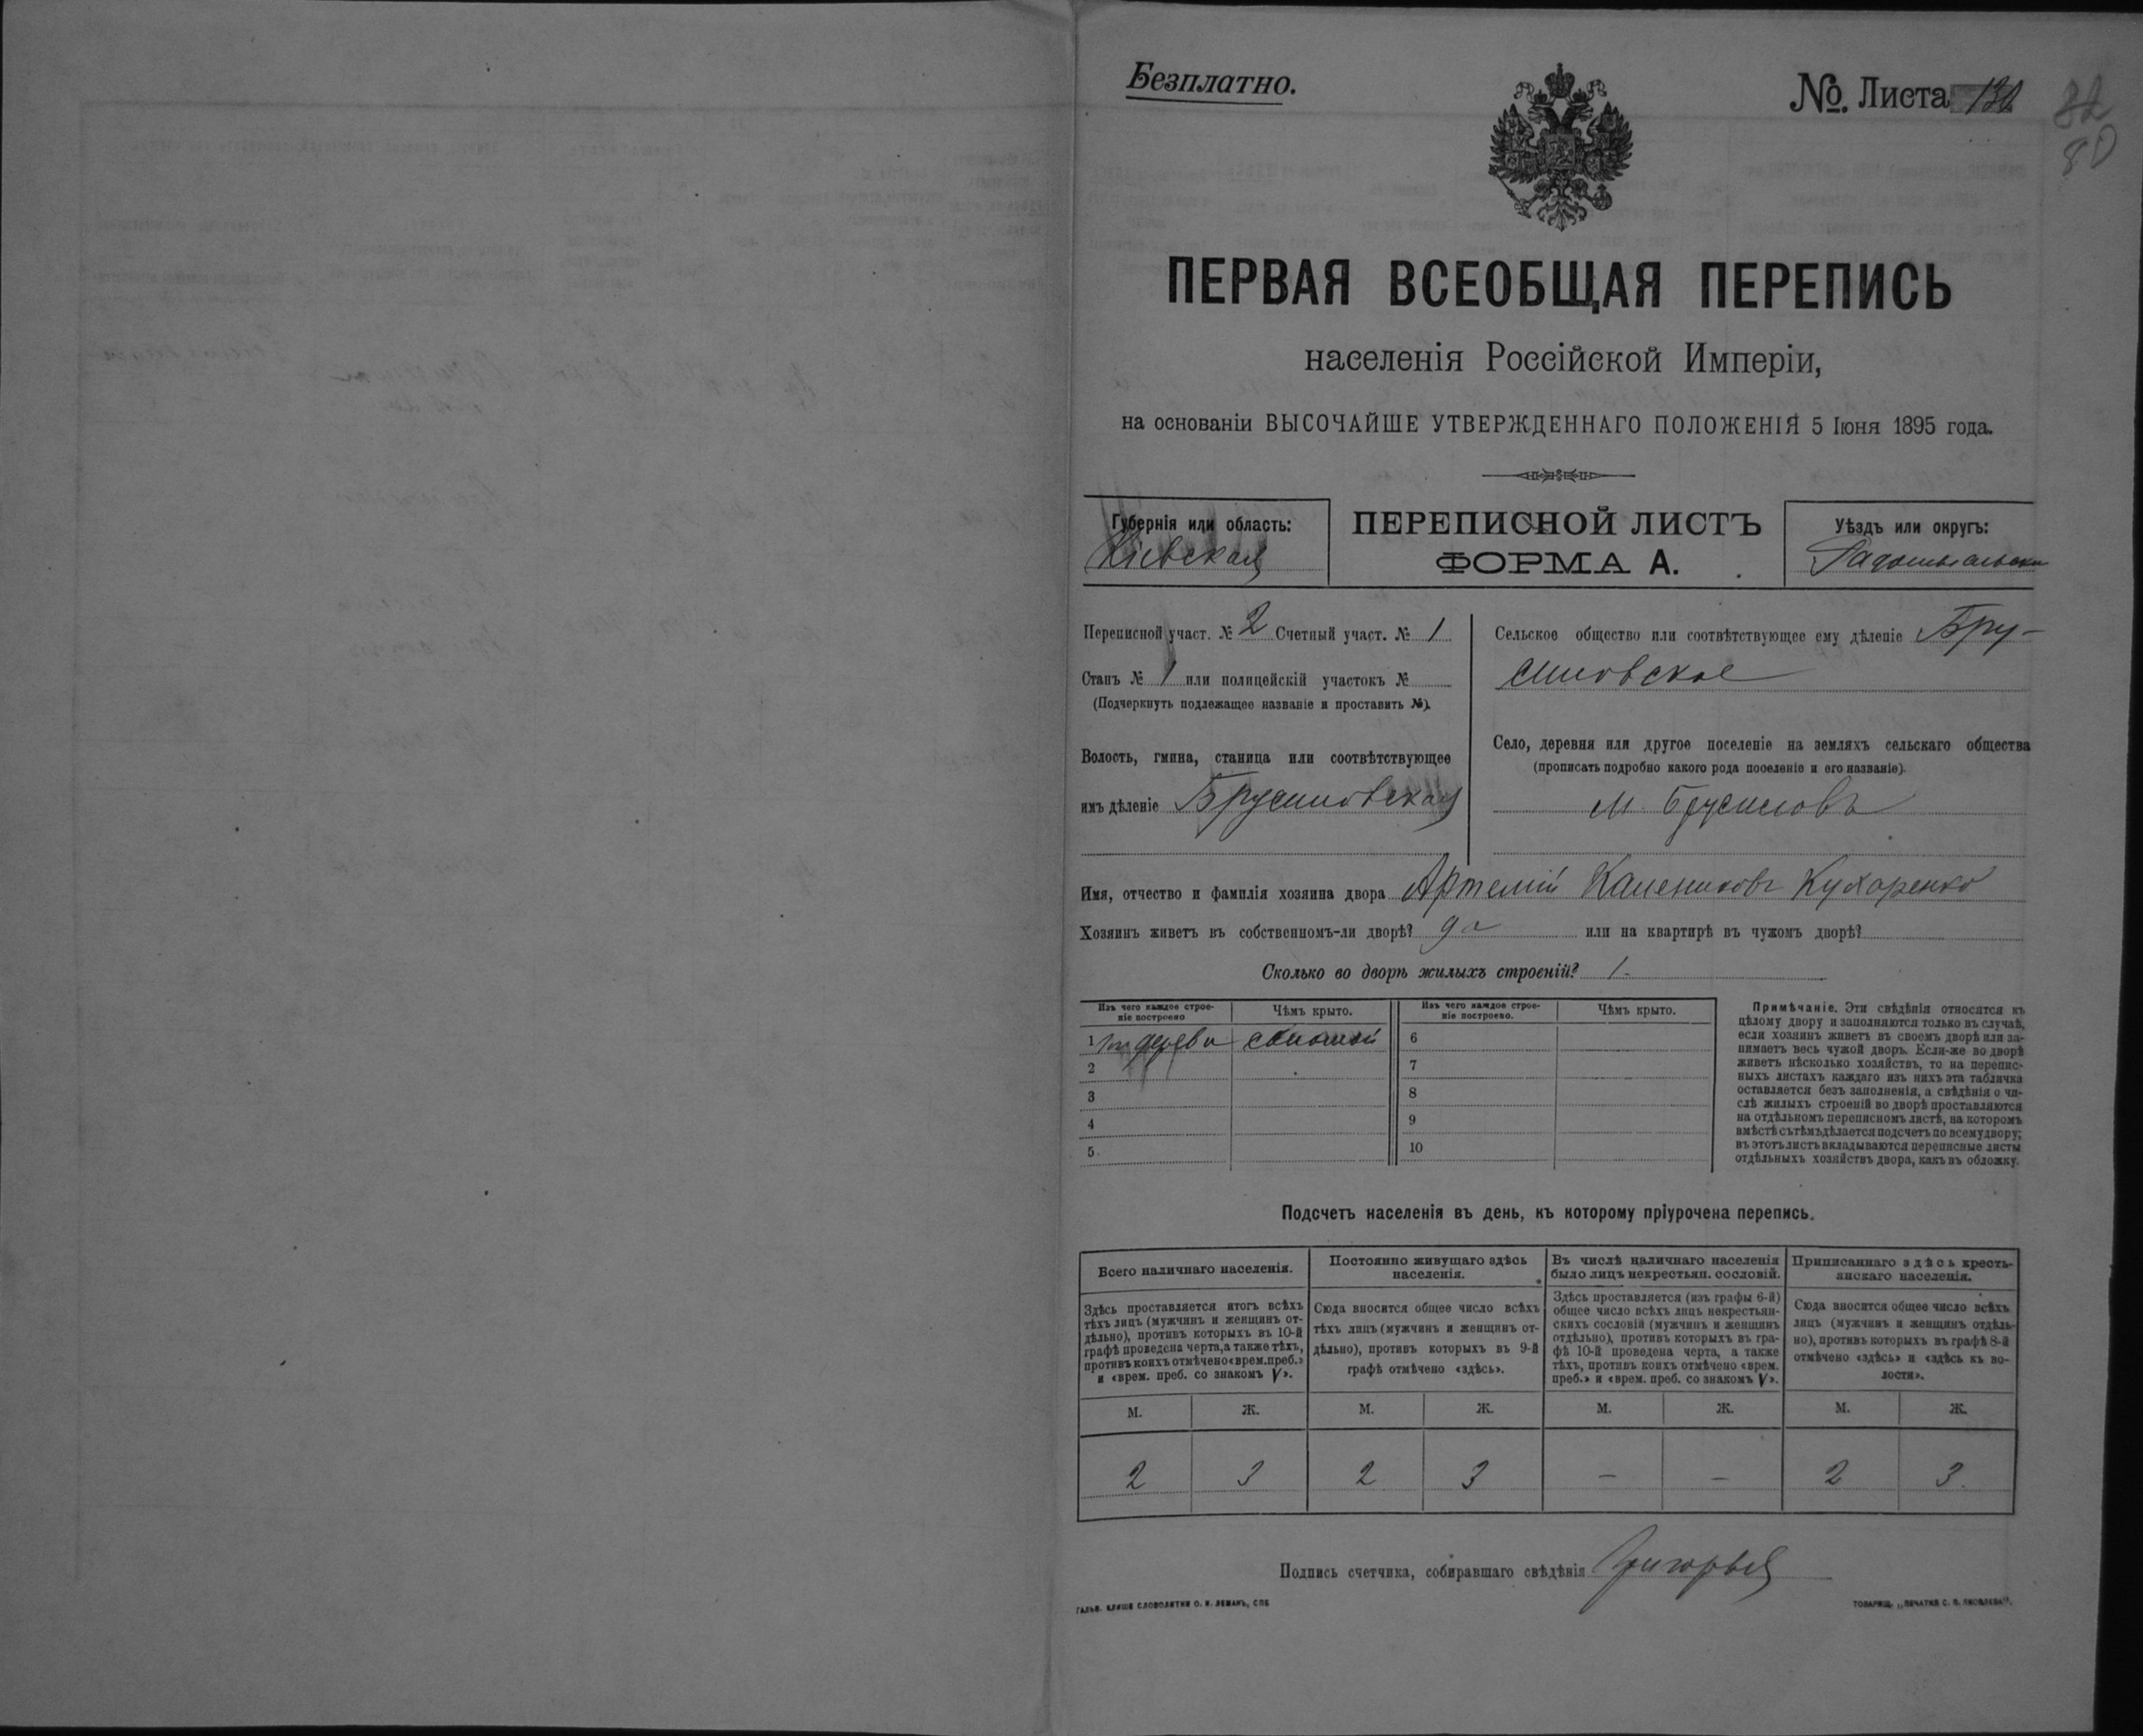 Безплатно.
№. Листа 130
82
80
ПЕРВАЯ ВСЕОБЩАЯ ПЕРЕПИСЬ
населенія Россійской Имперіи,
на основаніи ВЫСОЧАЙШЕ УТВЕРЖДЕННАГО ПОЛОЖЕНІЯ 5 Іюня 1895 года.
Губернія или область:
Кіевская
ПЕРЕПИСНОЙ ЛИСТЪ
ФОРМА А.
Уѣздъ или округъ:
Радомысльскій
Переписной участ. № 2 Счетный участ. № 1
Станъ № 1 или полицейскій участокъ №
(Подчеркнуть подлежащее названіе и проставить №).
Волость, гмина, станица или соотвѣтствующее
имъ дѣленіе Брусиловская
Сельское общество или соотвѣтствующее ему дѣленіе Бру-
силовское
Село, деревня или другое поселеніе на земляхъ сельскаго общества
(прописать подробно какого рода поселеніе и его названіе).
м. Брусиловъ
Имя, отчество и фамилія хозяина двора Артемій Калениковъ Кухаренко
Хозяинъ живетъ въ собственномъ-ли дворѣ? да или на квартирѣ въ чужомъ дворѣ?
Сколько во дворѣ жилыхъ строеній? 1.
Изъ чего каждое строе-
ніе построено
Чѣмъ крыто.
Изъ чего каждое строе-
ніе построено.
Чѣмъ крыто.
1 изъ дерева соломой 6
2 7
3 8
4 9
5. 10
Примѣчаніе. Эти свѣдѣнія относятся къ
цѣлому двору и заполняются только въ случаѣ,
если хозяинъ живетъ въ своемъ дворѣ или за-
нимаетъ весь чужой дворъ. Если-же во дворѣ
живетъ нѣсколько хозяйствъ, то на перепис-
ныхъ листахъ каждаго изъ нихъ эта табличка
оставляется безъ заполненія, а свѣдѣнія о чи-
слѣ жилыхъ строеній во дворѣ проставляются
на отдѣльномъ переписномъ листѣ, на которомъ
вмѣстѣ съ тѣмъ дѣлается подсчетъ по всему двору;
въ этотъ листъ вкладываются переписные листы
отдѣльныхъ хозяйствъ двора, какъ въ обложку.
Подсчетъ населенія въ день, къ которому пріурочена перепись.
Всего наличнаго населенія.
Постоянно живущаго здѣсь
населенія.
Въ числѣ наличнаго населенія
было лицъ некрестьян. сословій.
Приписаннаго здѣсь кресть-
янскаго населенія.
Здѣсь проставляется итогъ всѣхъ
тѣхъ лицъ (мужчинъ и женщинъ от-
дѣльно), противъ которыхъ въ 10-й
графѣ проведена черта, а также тѣхъ,
противъ коихъ отмѣчено «врем. преб.»
и «врем. преб. со знакомъ V».
Сюда вносится общее число всѣхъ
тѣхъ лицъ (мужчинъ и женщинъ от-
дѣльно), противъ которыхъ въ 9-й
графѣ отмѣчено «здѣсь».
Здѣсь проставляется (изъ графы 6-й)
общее число всѣхъ лицъ некрестьян-
скихъ сословій (мужчинъ и женщинъ
отдѣльно), противъ которыхъ въ гра-
фѣ 10-й проведена черта, а также
тѣхъ, противъ коихъ отмѣчено «врем.
преб.» и «врем. преб. со знакомъ V».
Сюда вносится общее число всѣхъ
лицъ (мужчинъ и женщинъ отдѣль-
но), противъ которыхъ въ графѣ 8-й
отмѣчено «здѣсь» и «здѣсь къ во-
лости».
М. Ж. М. Ж. М. Ж. М. Ж.
2 3 2 3 – – 2 3.
Подпись счетчика, собиравшаго свѣдѣнія Григорьев
ГАЛЬВ. КЛИШЕ СЛОВОЛИТНИ О. И. ЛЕМАНЪ, СПБ
ТОВАРИЩ. „ПЕЧАТНЯ С. П. ЯКОВЛЕВА".